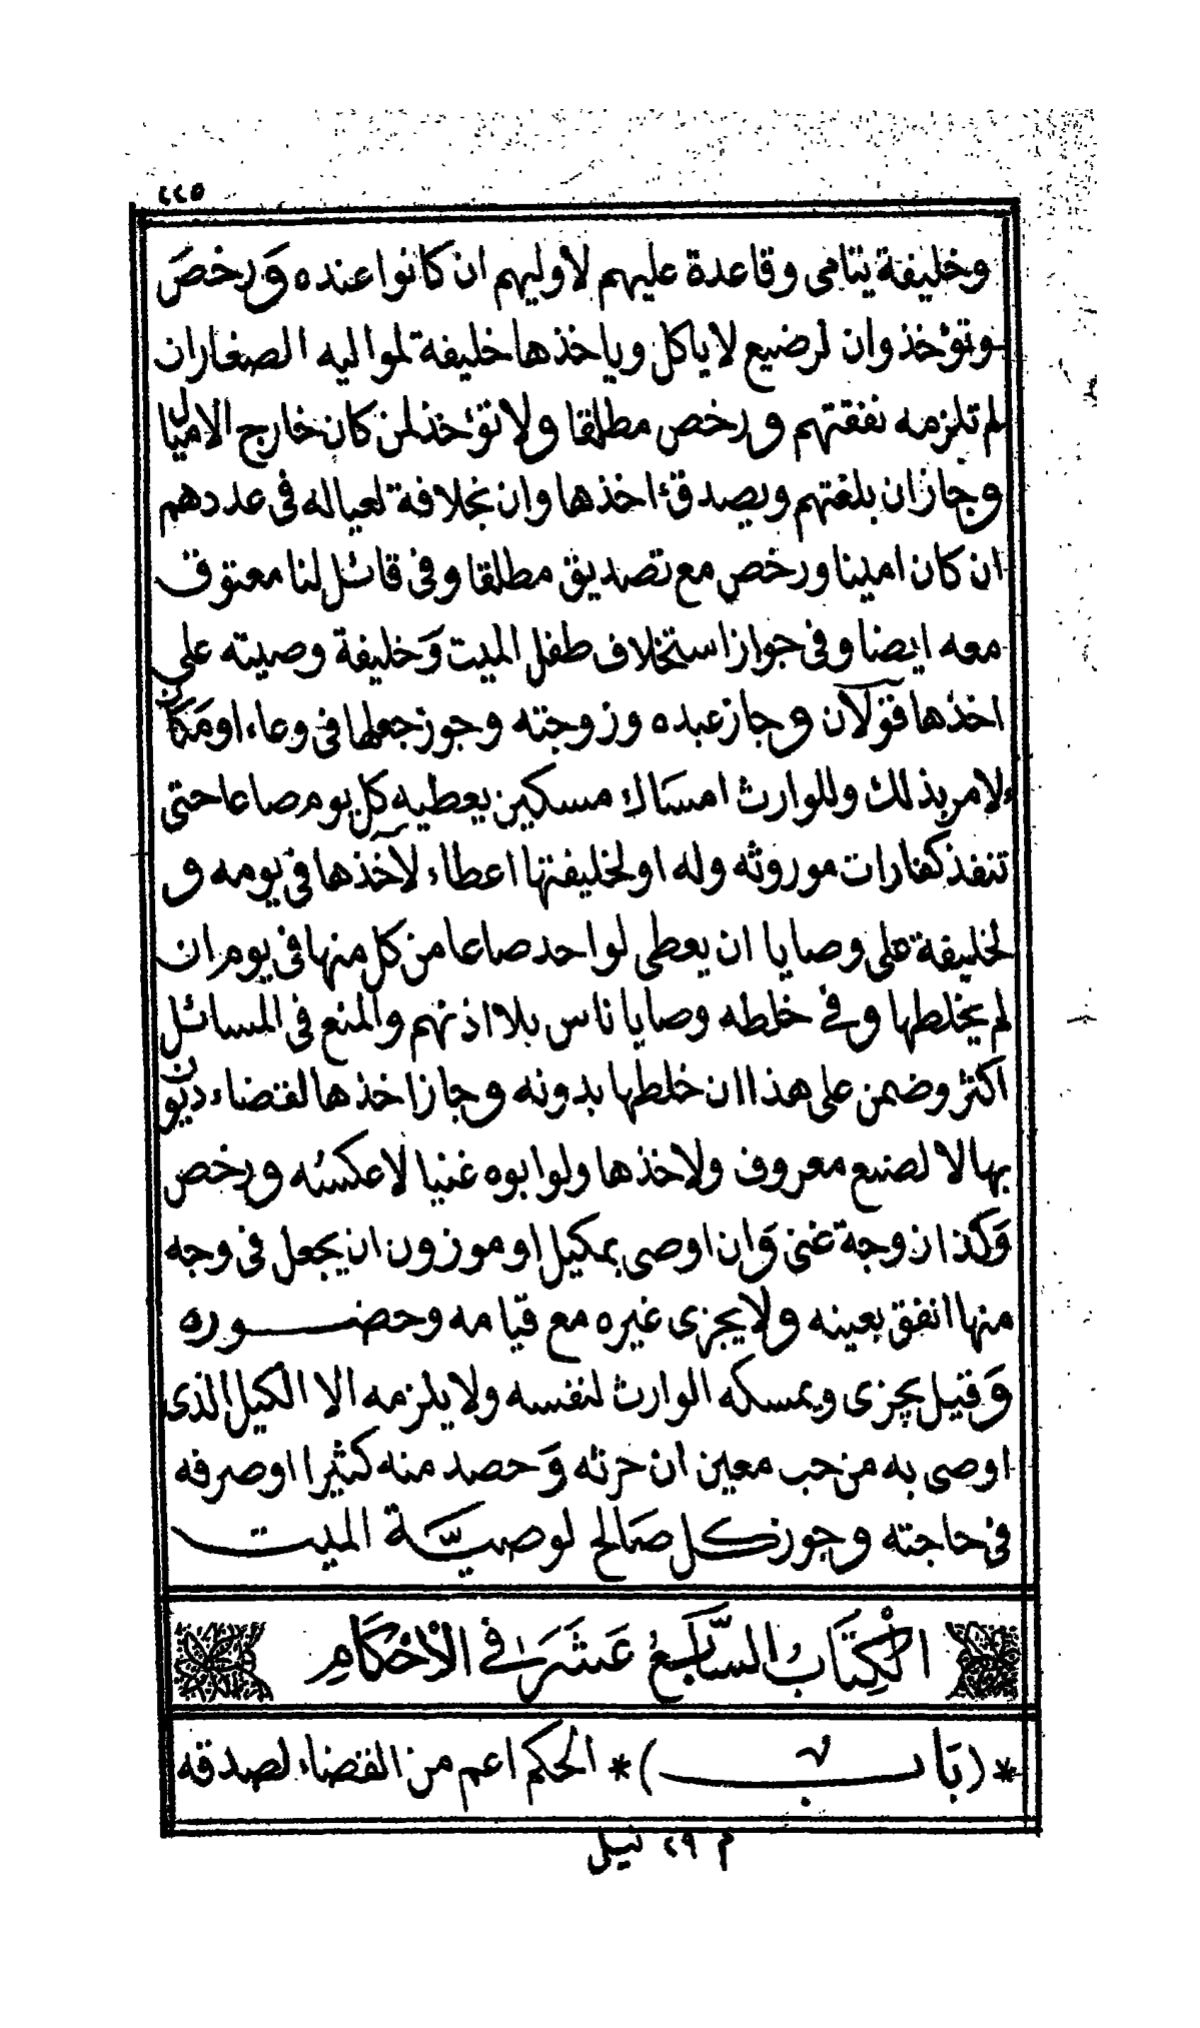 ٤٤٥
وخليفة يتامى وقاعدة عليهم لاوليهم ان كانوا عنده ورخص
وتؤخذ وان لرضيع لا ياكل وياخذها خليفة لمواليه الصغار ان
لم تلزمه نفقتهم ورخص مطلقا ولا تؤخذ لمن كان خارج الاميال
وجاز ان بلغتهم ويصدق اخذها وان بخلافة لعياله في عددهم
ان كان امينا ورخص مع تصديق مطلقا وفي قائل لنا معتوق
معه ايضا وفي جواز استخلاف طفل الميت وخليفة وصيته على
اخذها قولان وجاز عبده وزوجته وجوز جعلها في وعاء او مكان
لامر بذلك وللوارث امساك مسكين يعطيه كل يوم صاعا حتى
تنفذ كفارات موروثه وله او لخليفتها اعطاء لآخذها في يومه و
لخليفة على وصايا ان يعطى لواحد صاعا من كل منها في يوم ان
لم يخلطها وفي خلطه وصايا ناس بلا اذنهم والمنع في المسائل
اكثر وضمن على هذا ان خلطها بدونه وجاز اخذها لقضاء ديون
بها لا لصنع معروف ولاخذها ولو ابوه غنيا لا عكسه ورخص
وكذا زوجة غنى وان اوصى بمكيل او موزون ان يجعل في وجه
منها انفق بعينه ولا يجزى غيره مع قيامه وحضوره
وقيل يجزى ويمسكه الوارث لنفسه ولا يلزمه الا الكيل الذى
اوصى به من حب معين ان حرثه وحصد منه كثيرا او صرفه
في حاجته وجوز كل صالح لوصية الميت
الكتاب السابع عشر في الاحكام
* (باب) * الحكم اعم من القضاء لصدقه
م ٢٩ نيل